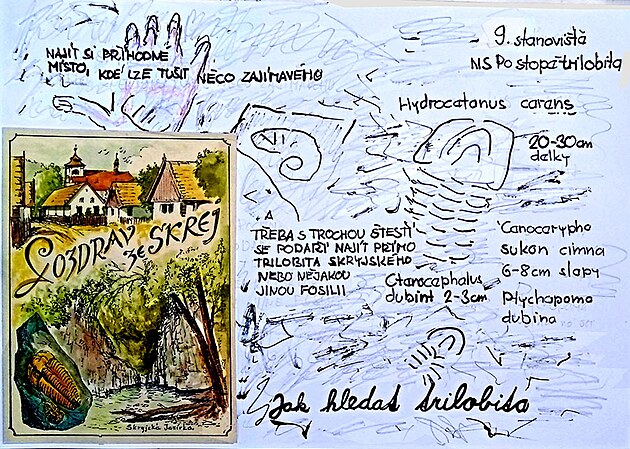 NAJÍT SI PŘÍHODNÉ
MÍSTO, KDE LZE TUŠIT NĚCO ZAJÍMAVÉHO
9. stanoviště
NS Po stopě trilobita
Hydrocatanus carens
20-30cm
delky
Pozdrav
ze SKREJ
TŘEBA S TROCHOU ŠTĚSTÍ
SE PODAŘÍ NAJÍT PŘÍMO
TRILOBITA SKRYJSKÉHO
NEBO NĚJAKOU
JINOU FOSILII
Ctarocephalus
dubint 2-3cm
Canocarypho
sukon cimna
6-8cm slapy
Ptychapomo
dubina
Skryjská Jezírka
Jak hledat trilobita